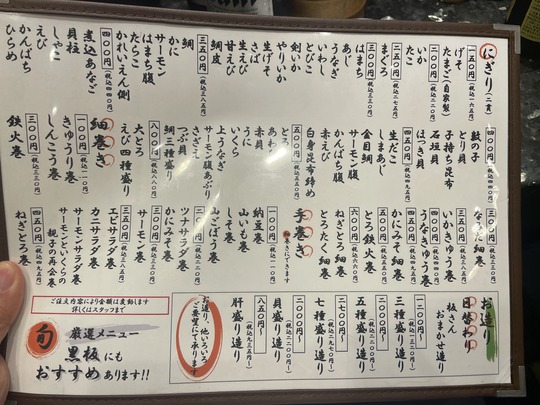 にぎり(二貫)
一五〇円(税込一六五円)
げそ
たまご(自家製)
二〇〇円(税込二二〇円)
いか
たこ
二五〇円(税込二七五円)
まぐろ
はまち
三〇〇円(税込三三〇円)
あじ
うなぎ
いわし
とびこ
剣いか
やりいか
生げそ
さば
生えび
甘えび
鯛皮
三五〇円(税込三八五円)
鯛
かに
サーモン
はまち腹
たらこ
かれいえん側
四〇〇円(税込四四〇円)
煮込あなご
貝柱
しゃこ
えび
かんぱち
ひらめ
四〇〇円(税込四四〇円)
数の子
とり貝
子持ち昆布
石垣貝
ほっき貝
四五〇円(税込四九五円)
生だこ
しまあじ
金目鯛
サーモン腹
かんぱち腹
赤えび
白身昆布締め
五〇〇円(税込五五〇円)
とろ
あわび
赤貝
いくら
上うなぎ
サーモン腹あぶり
つぶ貝
鯛三種盛り
八〇〇円(税込八八〇円)
大とろ
えびの三種盛り
細巻き
一〇〇円(税込一一〇円)
きゅうり巻
しんこう巻
三〇〇円(税込三三〇円)
鉄火巻
なみだ細巻
いかきゅう巻
四〇〇円(税込四四〇円)
うなきゅう巻
四五〇円(税込四九五円)
かにみそ細巻
五〇〇円(税込五五〇円)
とろ鉄火巻
六〇〇円(税込六六〇円)
ねぎとろ細巻
とろたく細巻
手巻き
細巻きにできます
一〇〇円(税込一一〇円)
納豆巻
山いも巻
しそ巻
山ごぼう巻
二〇〇円(税込二二〇円)
ツナサラダ巻
かにみそ巻
三〇〇円(税込三三〇円)
サーモン巻
三五〇円(税込三八五円)
エビサラダ巻
カニサラダ巻
サーモンサラダ巻
サーモンといくらの
親子の再会巻
四五〇円(税込四九五円)
ねぎとろ巻
お造り
日替わり
板さん
おまかせ造り
一二〇〇円~
(税込一三二〇円~)
三種盛り造り
二〇〇〇円~
(税込二二〇〇円~)
五種盛り造り
二七〇〇円~
(税込二九七〇円~)
七種盛り造り
二〇〇〇円~
(税込二二〇〇円~)
貝盛り造り
八五〇円~
(税込九三五円~)
肝盛り造り
お造り、他いろいろ
ご要望にて承ります
ご注文内容により金額は変動します
詳しくはスタッフまで
旬
厳選メニュー
黒板にも
おすすめあります!!